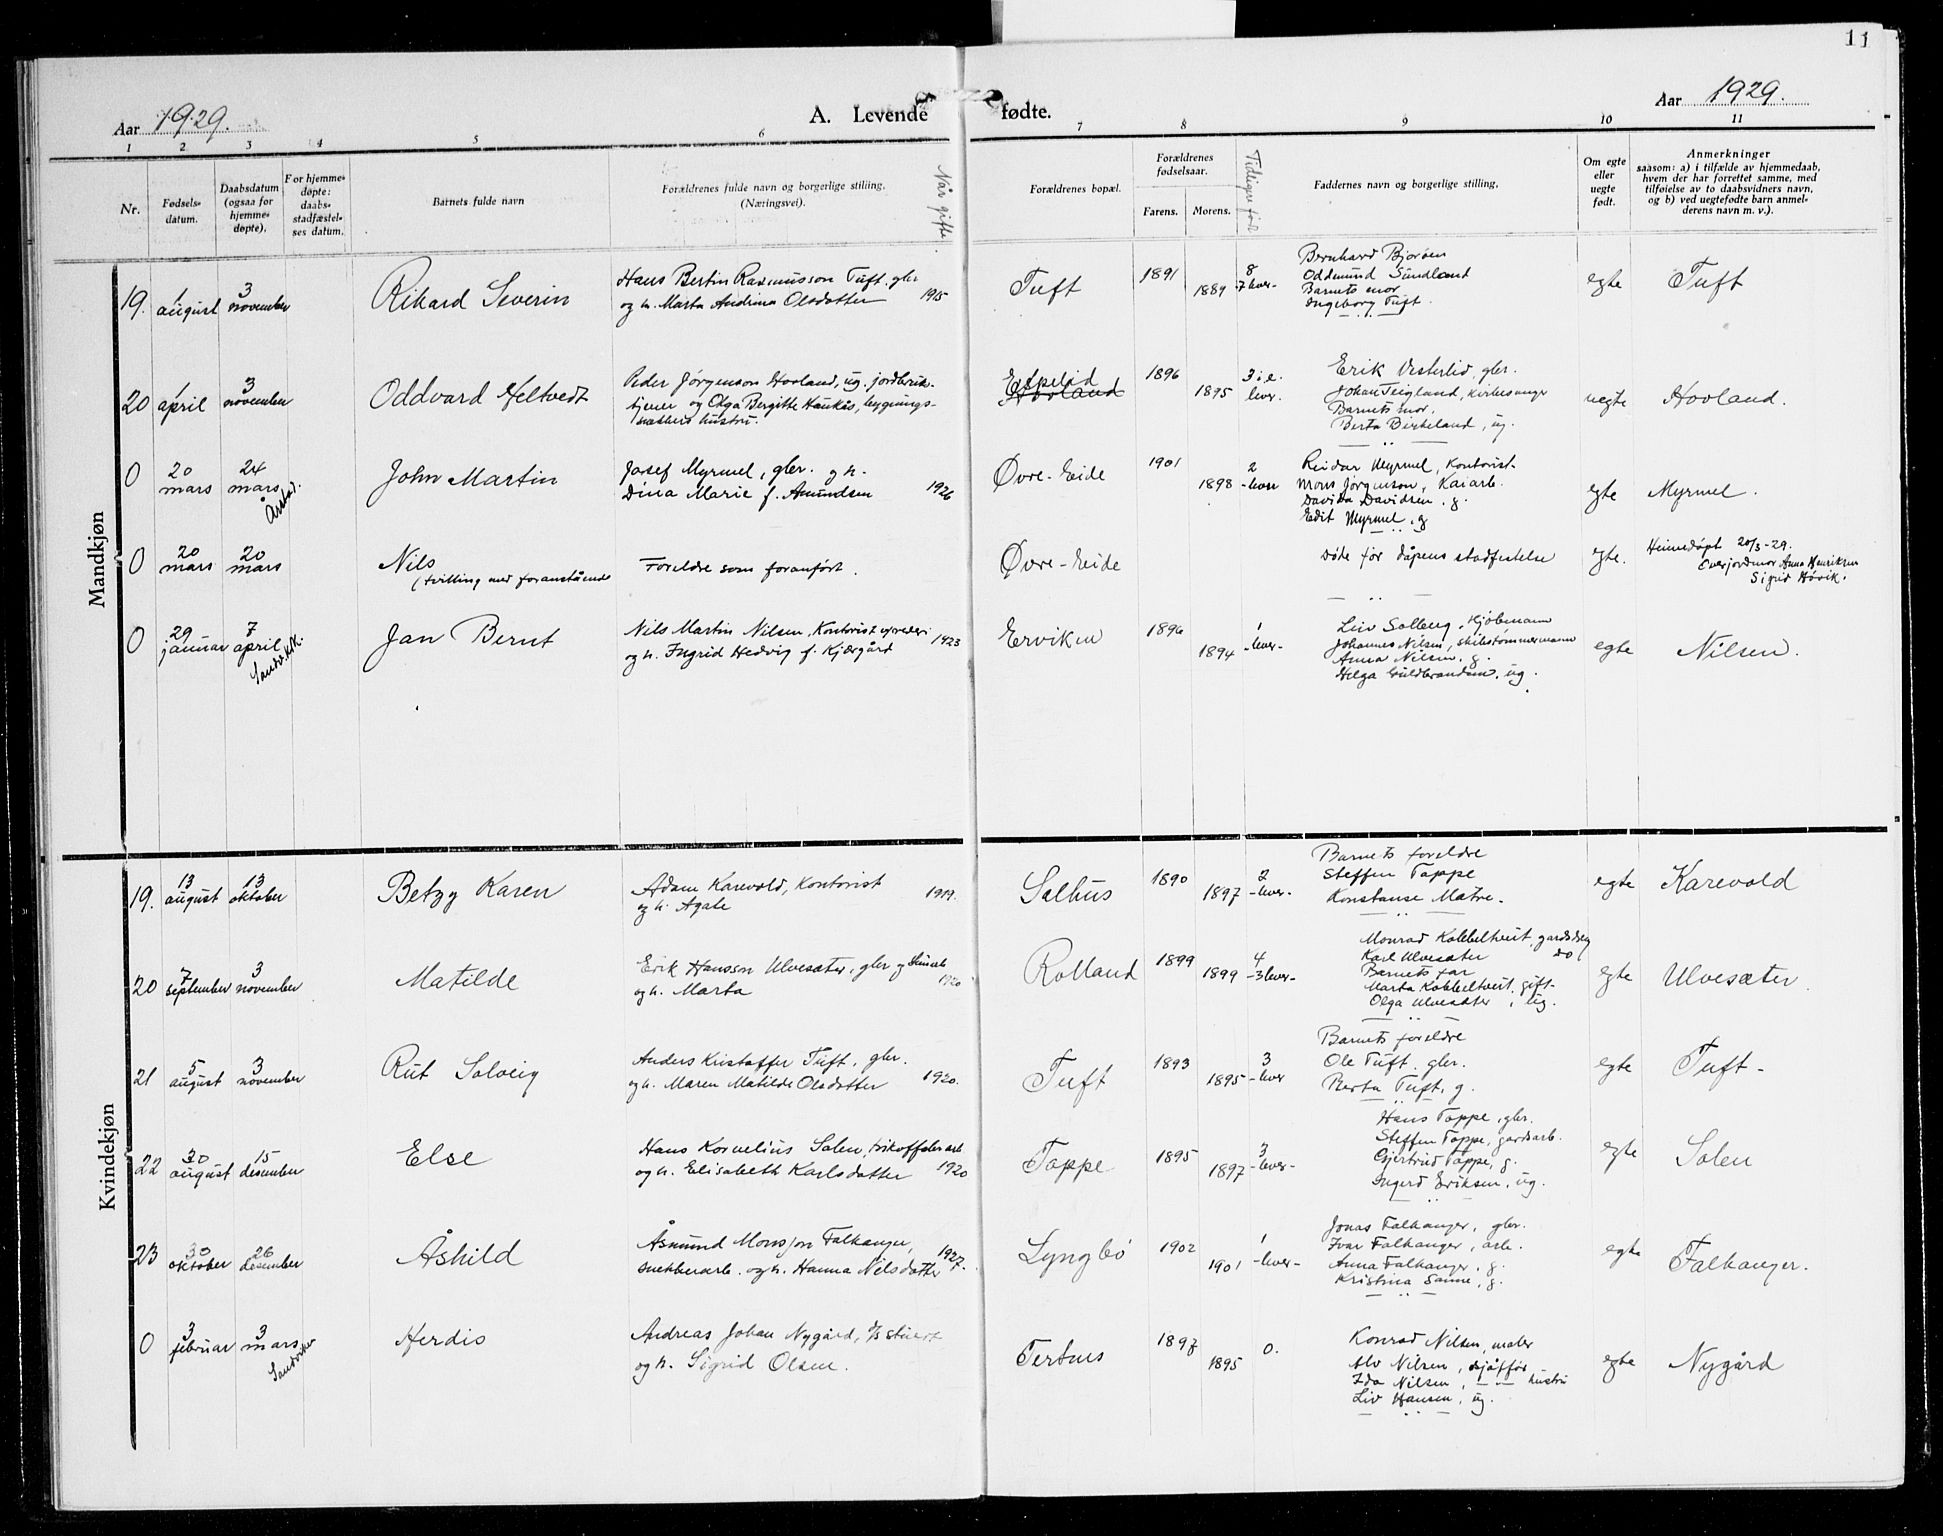 11
Aar 1929.
A. Levende fødte.
Aar 1929.
1 2 3 4 5 6 7 8 9 10 11
Nr.
Fødsels-datum.
Daabsdatum (ogsaa for hjemmedøpte).
For hjemmedøpte: daabs-stadfæstelses datum.
Barnets fulde navn
Forældrenes fulde navn og borgerlige stilling. (Næringsvei).
Når gifte.
Forældrenes bopæl.
Forældrenes fødselsaar.
Farens. Morens.
Tidligere født
Faddernes navn og borgerlige stilling.
Om egte eller uegte født.
Anmerkninger
saasom: a) i tilfælde av hjemmedaab, hvem der har forrettet samme, med tilføielse av to daabsvidners navn, og b) ved uegtefødte barn anmelderens navn m. v.).
Mandkjøn
19. 1 august 3 november Rikard Severin
Hans Bertin Rasmusson Tuft, gbr
og h. Marta Andina Olsdatter 1915
Tuft 1891 1889 8 -7 lever-
Bernhard Bjorøen
Oddmund Sundland
Barnets mor
Ingeborg Tuft.
egte Tuft
20 1 april 3 november Oddvard Heltvedt
Peder Jørgenson Hovland, ug. jordbruks-
tjener og Olga Bergitte Haukås, bygnings-
hustru.
Espelid
Hovland
1896 1895 3 i e. lever.
Erik Vesterlid, gbr.
Johan Teigland, kirkesanger
Barnets mor.
Berta Birkeland, ug.
uegte Hovland.
0 20 mars 24 mars Årstad. John Martin
Josef Myrmel, gbr. og h.
Dina Marie f. Amundsen 1926
Øvre-Eide 1901 1898 2 -lever
Reidar Myrmel, Kontorist-
Mons Jørgenson, Kaiarb.
Davida Davidsen, g.
Edit Myrmel, g
egte Myrmel.
0 20 mars 20 mars Nils
(tvilling med foranstående
Foreldre som foranført.
Øvre-Eide
Døde før dåpens stadfestelse
egte. Heimedøpt 20/3-29.
Overjordmor Anna Henriksen
Sigrid Høvik.
0 29 januar 7 april Sandvikk. Jan Bernt
Nils Martin Nilsen, Kontorist
og h. Ingrid Hedvig f. Kjærgård 1923
Erviken 1896 1894 1 -lever-
Liv Solberg, Kjøbmann
Johannes Nilsen, skibstømmermann
Anna Nilsen, g.
Helga Guldbrandsen, ug.
egte Nilsen.
Kvindekjøn
19. 13 august 13 oktober Betzy Karen
Adam Karevold, Kontorist
og h. Agate 1919.
Salhus 1890 1897 2 -lever-
Barnets foreldre
Steffen Toppe
Konstanse Matre-
egte Karevold
20 7 september 3 november Matilde
Erik Hansson Ulvesæter, gbr og
og h. Marta 1920
Rolland 1899 1899 4 -3 lever-
Monrad Kobbeltveit, gardsdrg
Karl Ulvesæter do
Barnets far
Marta Kobbeltveit, gift-
Olga Ulvesæter, ug.
egte Ulvesæter
21 5 august 3 november Rut Solveig
Anders Kristoffer Tuft, gbr.
og h. Maren Matilde Olsdatter 1920.
Tuft 1893 1895 3 -lever
Barnets foreldre
Ole Tuft, gbr.
Berta Tuft, g.
egte Tuft-
22 30 august 15 desember Else
Hans Kornelius Solen, trikoffabr arb
og h. Elisabeth Karlsdatter 1920
Toppe 1895 1897 3 -lever-
Hans Toppe, gbr.
Steffen Toppe, gardsarb.
Gjertrud Toppe, g.
Ingerd Eriksen, ug.
egte Solen
23 30 oktober 26 desember Åshild
Åsmund Monsson Falkanger,
snekkerarb. og h. Hanna Nilsdatter 1927.
Lyngbø 1902 1901 1 -lever-
Jonas Falkanger, gbr.
Ivar Falkanger, arb.
Anna Falkanger, g.
Kristina Sanne, g.
egte Falkanger.
0 3 februar 3 mars Sandviken Herdis
Andreas Johan Nygård, d/s stuert
og h. Sigrid Olsen.
Tertnes 1897 1895 0.
Konrad Nilsen, maler
Alv Nilsen, sjåffør
Ida Nilsen, — — hustru
Liv Hansen, ug.
egte Nygård